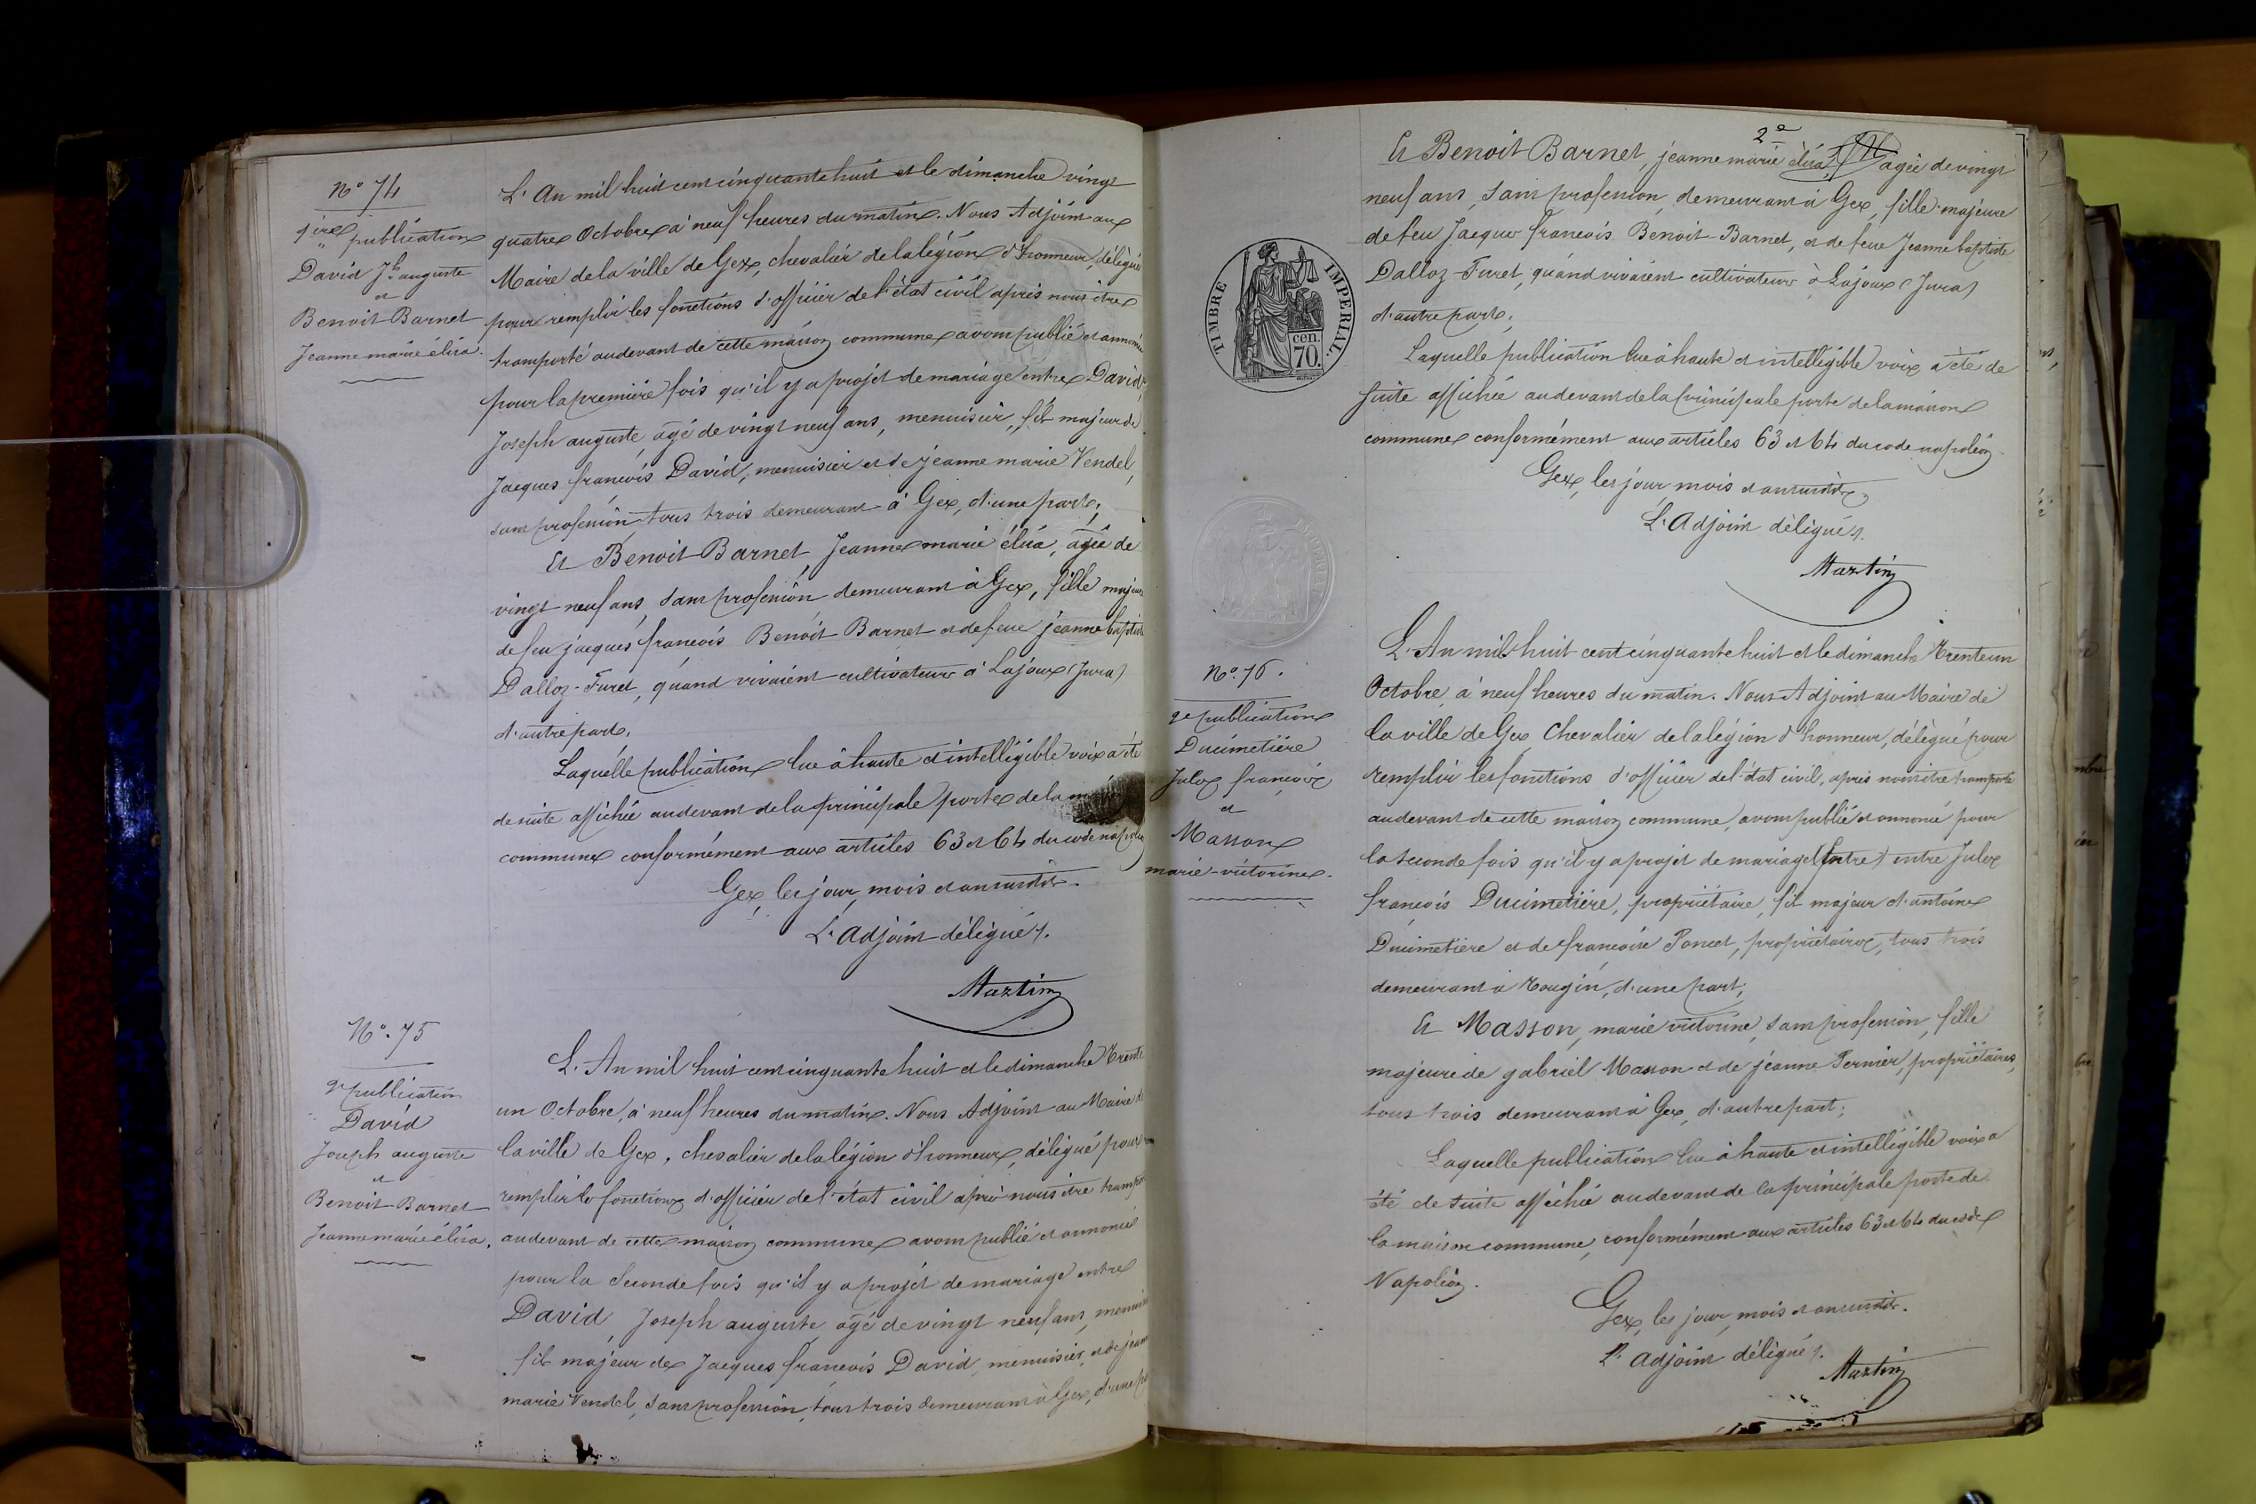 N° 74
1ère publication
David Jh auguste
et
Benoit-Barnet
Jeanne marie éliza.
L'An mil huit cent cinquante huit et le dimanche vingt
quatre Octobre à neuf heures du matin. Nous Adjoint au
Maire de la ville de Gex, chevalier de la légion d'honneur, délégué
pour remplir les fonctions d'officier de l'état civil après nous être
transporté au devant de cette maison commune avons publié et annoncé
pour la première fois qu'il y a projet de mariage entre David,
Joseph auguste, agé de vingt neuf ans, menuisier, fils majeur de
Jacques françois David, menuisier et de jeanne marie Vendel,
sans profession, tous trois demeurant à Gex, d'une part;
Et Benoit-Barnet, Jeanne marie éliza, agée de
vingt neuf ans, sans profession demeurant à Gex, fille majeure
de feu jacques françois Benoit Barnet et de feue jeanne baptiste
Dalloz-Furet, quand vivaient cultivateurs à Lajoux (Jura)
d'autre part.
Laquelle publication lue à haute et intelligible voix a été
de suite affichée au devant de la principale porte de la maison
commune conformément aux articles 63 et 64 du code napoléon
Gex, les jour, mois et an susdits.
L'adjoint délégué.
Martin
N° 75
2e publication
David
Joseph auguste
et
Benoit-Barnet
Jeanne marie éliza.
L'An mil huit cent cinquante huit et le dimanche Trente
un Octobre, à neuf heures du matin. Nous Adjoint au Maire de
la ville de Gex, chevalier de la légion d'honneur, délégué pour
remplir les fonctions d'officier de l'état civil après nous être transporté
au devant de cette maison commune avons publié et annoncé
pour la seconde fois qu'il y a projet de mariage entre
David Joseph auguste, agé de vingt neuf ans, menuisier
fils majeur de Jacques françois David, menuisier, et de jeanne
marie Vendel, sans profession, tous trois demeurant à Gex, d'une part
2e
Et Benoit-Barnet, jeanne marie éliza, agée de vingt
neuf ans, sans profession, demeurant à Gex, fille majeure
de feu Jacques françois Benoit-Barnet, et de feue Jeanne baptiste
Dalloz-Furet, quand vivaient cultivateurs à Lajoux (Jura)
d'autre part.
Laquelle publication lue à haute et intelligible voix a été de
suite affichée au devant de la principale porte de la maison
commune conformément aux articles 63 et 64 du code napoléon.
Gex, les jour mois et an susdits,
L'Adjoint délégué.
Martin
TIMBRE IMPERIAL.
cen.
70.
N° 76.
2e publication
Ducimetière
Jules françois
et
Masson
marie-victorine.
L'An mil huit cent cinquante huit et le dimanche Trente un
Octobre, à neuf heures du matin. Nous Adjoint au Maire de
la ville de Gex Chevalier de la légion d'honneur, délégué pour
remplir les fonctions d'officier de l'état civil, après nous être transporté
au devant de cette maison commune, avons publié et annoncé pour
la seconde fois qu'il y a projet de mariage (Entre) entre Jules
françois Ducimetière, propriétaire, fils majeur d'antoine
Ducimetière et de françoise Poncet, propriétaires, tous trois
demeurant à Tougin, d'une part;
Et Masson, marie victorine, sans profession, fille
majeure de gabriel Masson et de jeanne Pernier, propriétaires,
tous trois demeurant à Gex, d'autre part;
Laquelle publication lue à haute et intelligible voix a
été de suite affichée au devant de la principale porte de
la maison commune, conformément aux articles 63 et 64 du code
Napoléon.
Gex, les jour, mois et an susdits.
L'adjoint délégué.
Martin